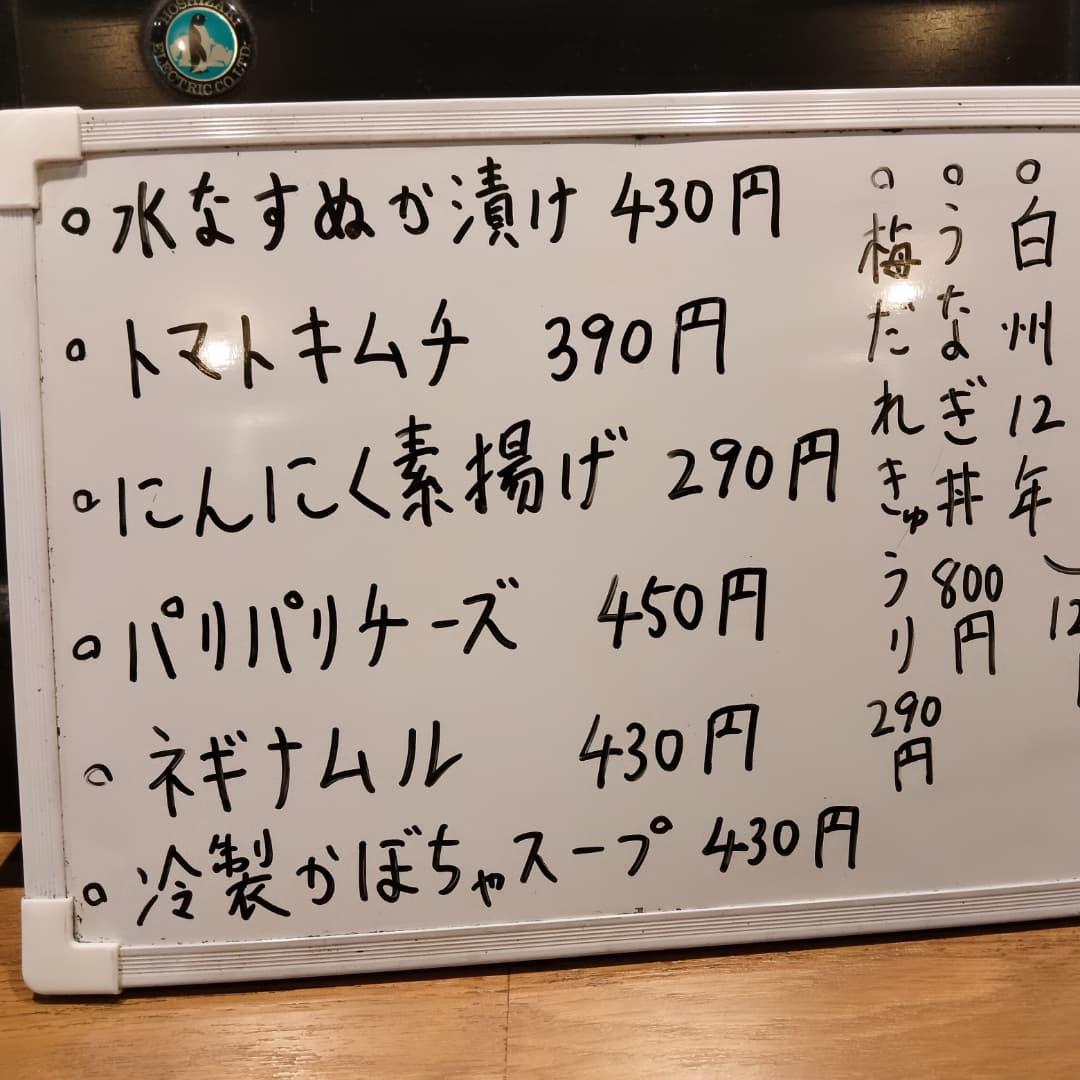 HOSHIZAKI
ELECTRIC CO.LTD.
水なすぬか漬け 430円
トマトキムチ 390円
にんにく素揚げ 290円
パリパリチーズ 450円
ネギナムル 430円
冷製かぼちゃスープ 430円
白州12年
12
うなぎ丼 800円
梅だれきゅうり 290円